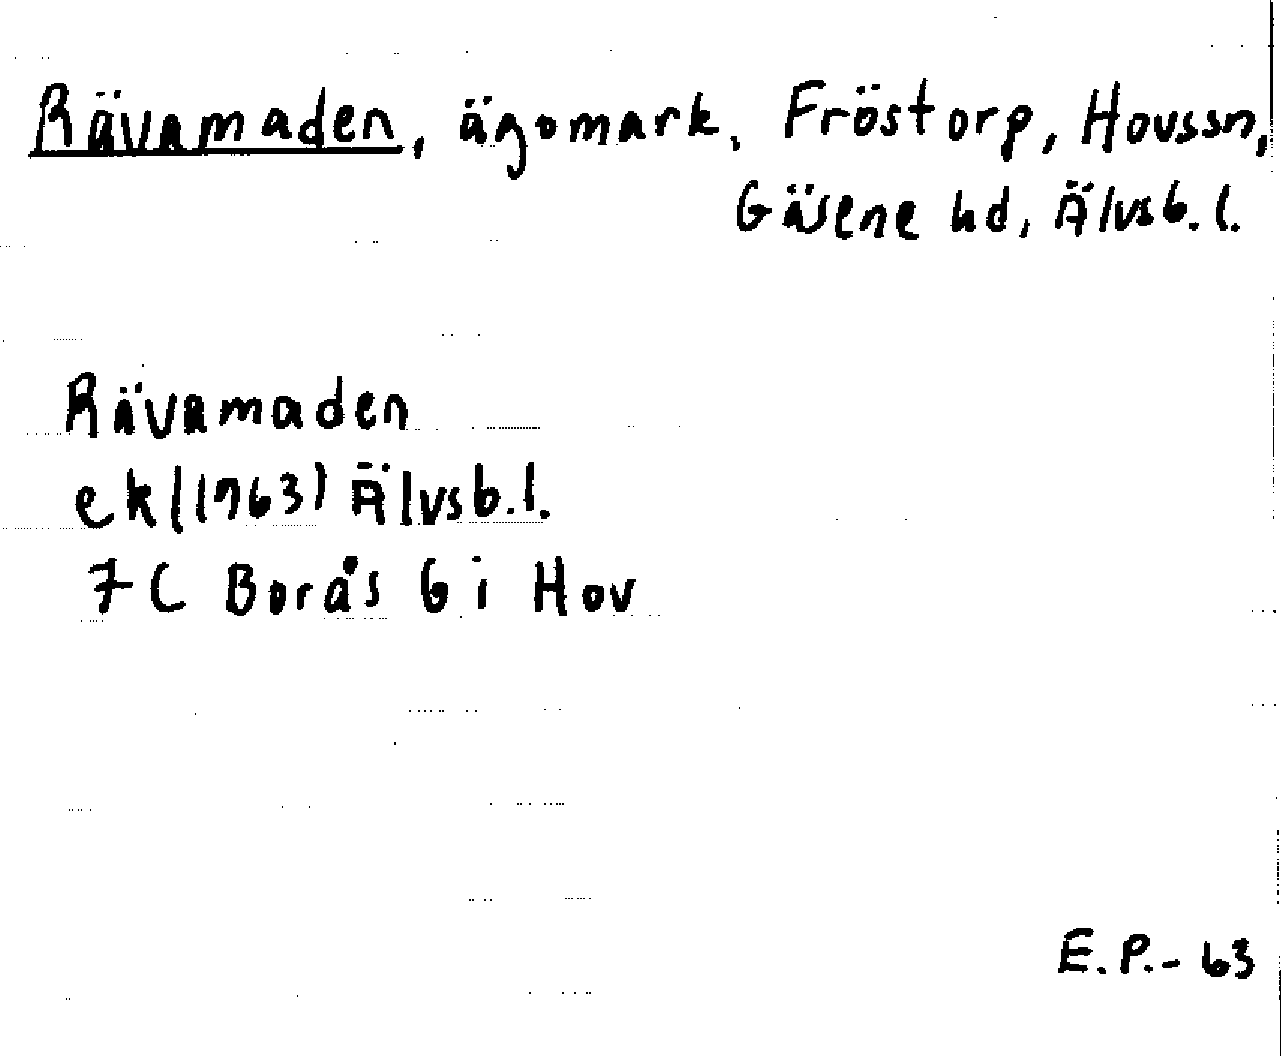 Rävamaden, ägomark, Fröstorp, Hovssn,
Gäsene hd, Älvsb. l.
Rävamaden
ek (1963) Älvsb. l.
7C Borås 6 i Hov
E.P. - 63